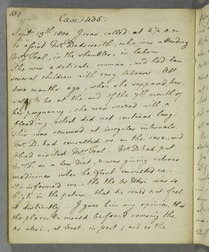 181
Case 425.
Sept. 13th 1800 I was called at
to assist Mr. Dodsworth, who was attending
Mrs. Teal, in the shambles, in labour.
She was a delicate woman, and had born
several children with easy labours. Abt
two months ago, when she supposed her-
self to be at the end of the 7th month of
her pregnancy she was seized with a
flooding which did not continue long.
She was renewed at irregular intervals.
Mr. D. had consulted me on the
that visited Mrs. Teal. Mr. D. had put
Mrs. T. on a low diet, & was giving
medicines when he first consulted me.
He informed me that the Os Uteri was so
high in the pelvis, that he could not feel
it distinctly. I gave him my opinion that
the placenta would be found covering the
os uteri, at least, in part; and as the